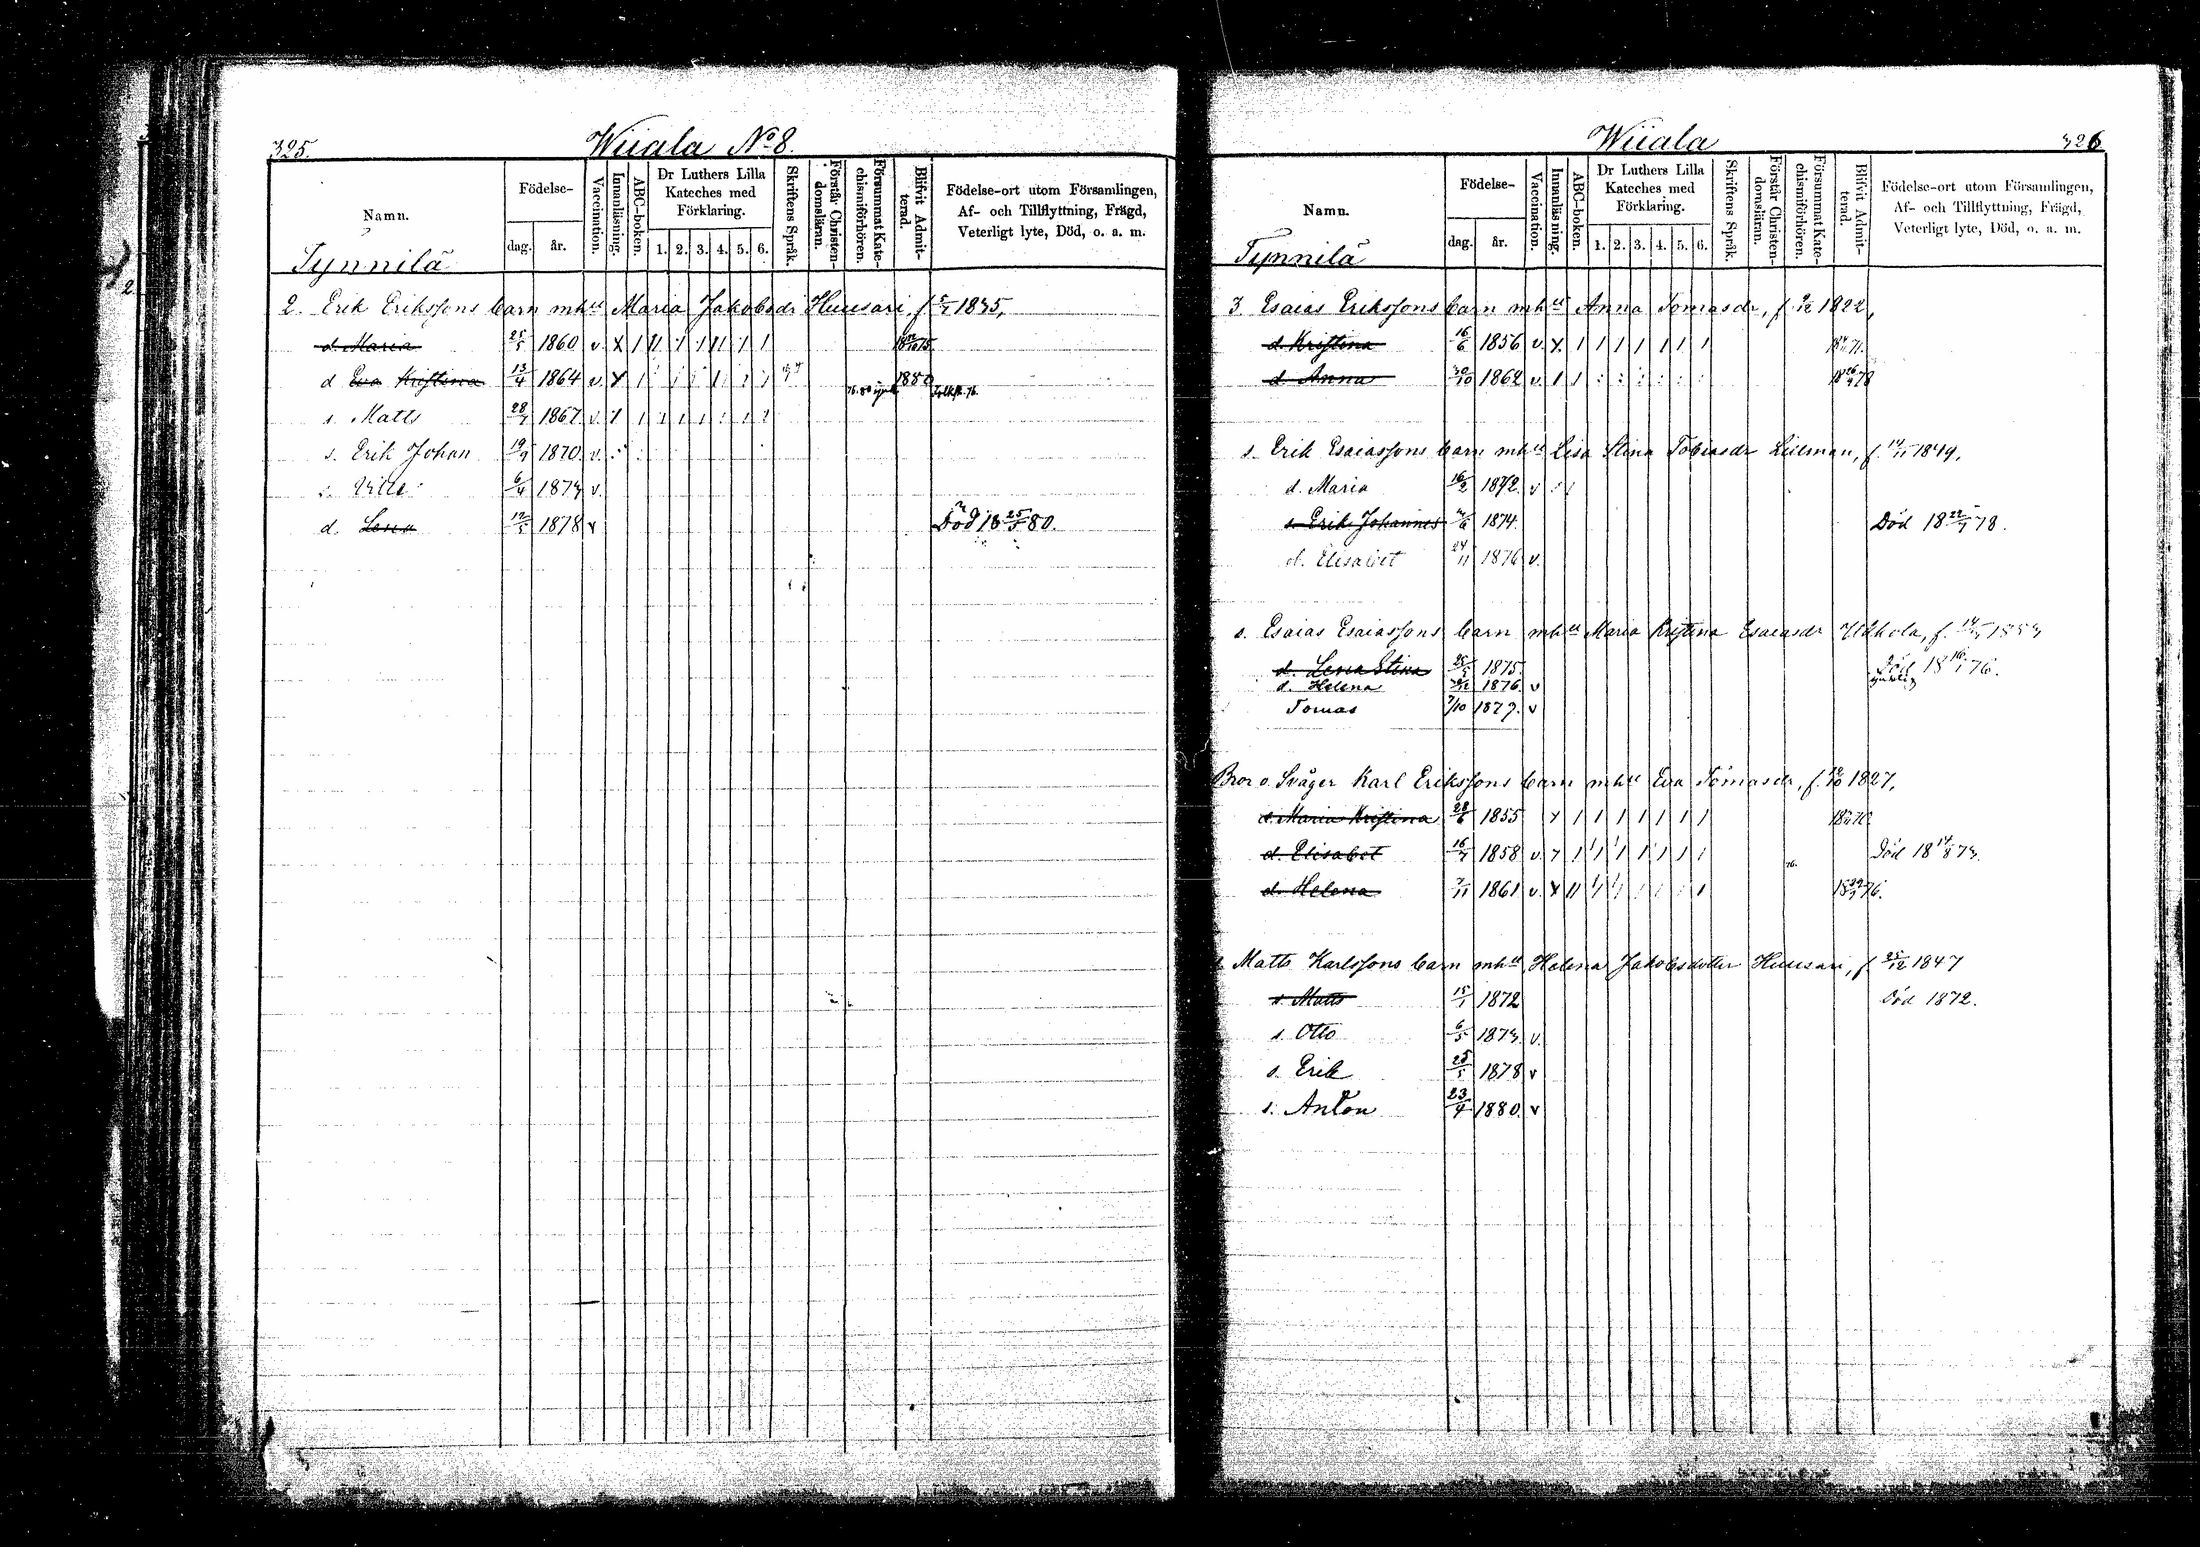 325.
Wiiala No 8.
Namn.
Födelse-
dag.
år.
Vaccination.
Innanläsning.
ABC-boken.
Dr Luthers Lilla Kateches med Förklaring.
1. 2. 3. 4. 5. 6.
Skriftens Språk.
Förstår Christendomsläran.
Försummat Katechismiförhören.
Blifvit Admitterad.
Födelse-ort utom Församlingen, Af- och Tillflyttning, Frägd, Veterligt lyte, Död, o. a. m.
Tynnilä
2. Erik Erikssons barn mhu Maria Jakobsdr Huusari, f. 1835,
d. Maria 25/5 1860 v.
d Eva Kristina 13/4 1864 v. 1880
s. Matts 28/7 1867 v.
s. Erik Johan 19/9 1870. v.
s. Ville 6/4 1873 v.
d. Lena 12/5 1878 v Död 18 25/5 80.
Wiiala
326
Namn.
Födelse-
dag.
år.
Vaccination.
Innanläsning.
ABC-boken.
Dr Luthers Lilla Kateches med Förklaring.
1. 2. 3. 4. 5. 6.
Skriftens Språk.
Förstår Christendomsläran.
Försummat Katechismiförhören.
Blifvit Admitterad.
Födelse-ort utom Församlingen, Af- och Tillflyttning, Frägd, Veterligt lyte, Död, o. a. m.
Tynnilä
3 Esaias Erikssons barn mhu Anna Tomasdr, f. 9/12 1822,
d. Kristina 16/6 1856 v.
d. Anna 30/10 1862 v.
s. Erik Esaiassons barn mhu Lisa Stina Tobiasdr Lilleman, f. 14/11 1849.
d. Maria 16/2 1872. v
s. Erik Johannes 1874. Död 18 22/7 78.
d. Elisabet 24/11 1876 v.
s. Esaias Esaiassons barn mhu Maria Kristina Esaiasdr f. 1853
d. Lena Stina 25/5 1875. Död 18 16/1 76.
d. Helena 1876. v
Tomas 7/10 1879. v
Bror o. Svåger Karl Erikssons barn mhu Eva Tomasdr, f. 1827,
d. Maria Kristina 28/6 1855
d. Elisabet 16/7 1858 v. Död 18 14/8 73.
76.
d. Helena 7/11 1861 v. 18 29/7 76.
s. Matts Karlssons barn mhu Helena Jakobsdotter Huusari, f. 25/12 1847
s. Matts 15/1 1872 Död 1872.
s. Otto 6/5 1873. v.
s. Erik 25/5 1878 v
s. Anton 23/4 1880. v